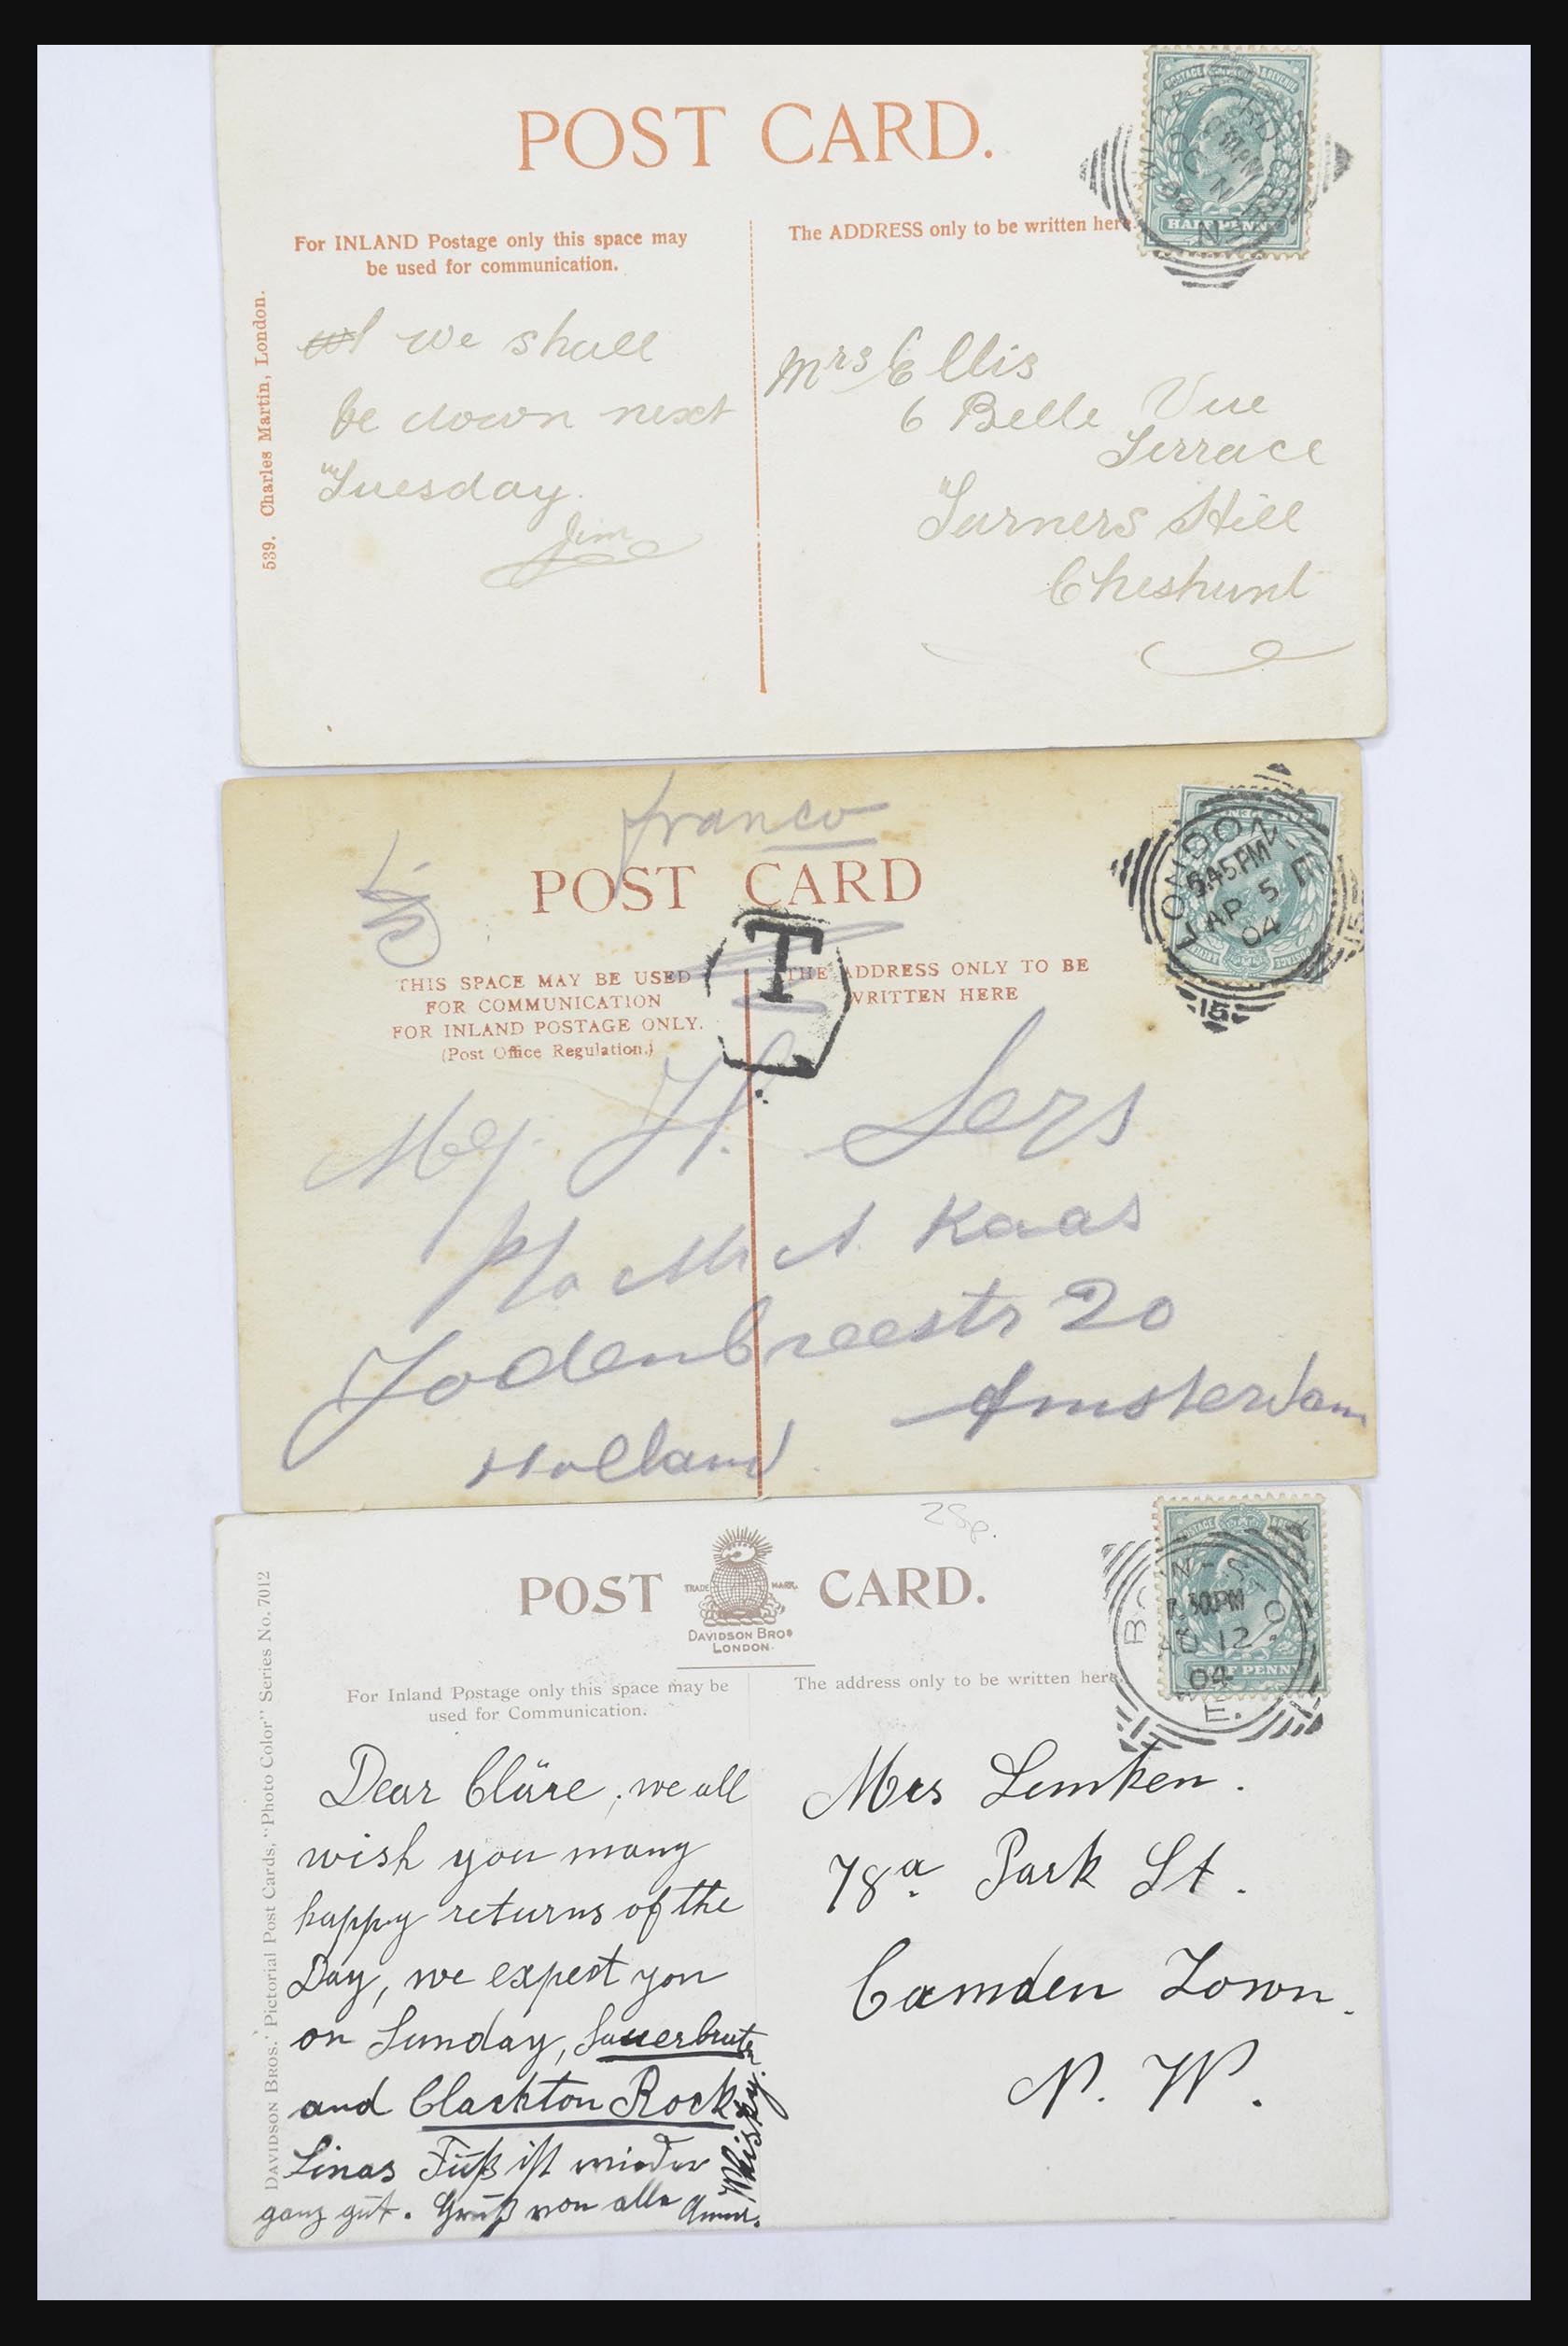 POST CARD.
For INLAND Postage only this space may
be used for communication.
The ADDRESS only to be written here.
539. Charles Martin, London.
POSTAGE & REVENUE
HALFPENNY
we shall
be down next
Tuesday.
Jim
Mrs Ellis
6 Belle Vue
Terrace
Turners Hill
Cheshunt
franco
POST CARD
T
THIS SPACE MAY BE USED
FOR COMMUNICATION
FOR INLAND POSTAGE ONLY.
(Post Office Regulation.)
THE ADDRESS ONLY TO BE
WRITTEN HERE
LONDON E
5.45 PM
AP 5
04
15
15
Mej. H. Sers
p/a Mr A. Kaas
Jodenbreestr 20
Amsterdam
Holland
25p.
POST CARD.
TRADE MARK.
DAVIDSON BROS
LONDON.
For Inland Postage only this space may be
used for Communication.
The address only to be written here.
DAVIDSON BROS.' Pictorial Post Cards, "Photo Color" Series No. 7012
POSTAGE & REVENUE
HALFPENNY
7.30PM
12
04
E.
Dear Cläre, we all
wish you many
happy returns of the
Day, we expect you
on Sunday, Sauerbraten
and Clackton Rock,
Whisky.
Linas Fuß ist wieder
ganz gut. Gruß von alle
Mrs Lemken.
78a Park St.
Camden Town.
N. W.